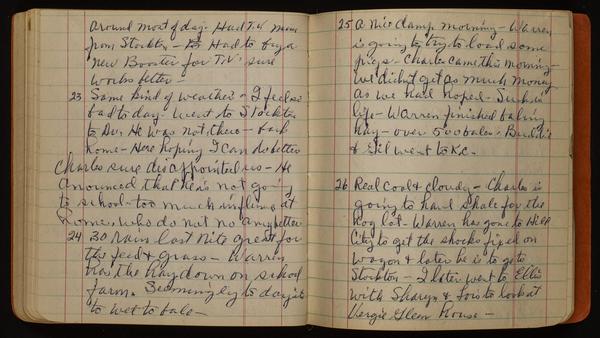 Around most of day. Had T.V. Man
from Stockton - Had to buy a
New Booster for T.V. sure
works better -
23 Same kind of weather - I feel so
bad to day. Went to Stockton
to Dr. He was not there - back
home - Here hoping I can do better
Charles sure disappointed us - He
anounced that he is not going
to school - too much influence at
home, who do not no any better
24 .30 Rain last nite great for
the feed & grass - Warren
has the hay down on school
farm. Seemingly to day it is
to wet to bale -
25 A nice damp morning - Warren
is going to try to load some
pigs - Charles came this morning
we didn't get as much money
as we had hoped. Such is
life - Warren finished baling
hay - over 500 bales. Buddie
& Sil went to K.C.
26 Real cool & cloudy - Charles is
going to haul shale for the
hog lot - Warren has gone to Hill
City to get the shocks fixed on
wagon & later he is to go to
Stockton - I later went to Ellis
with Sharyn & Lois to look at
Vergie Glenn House -